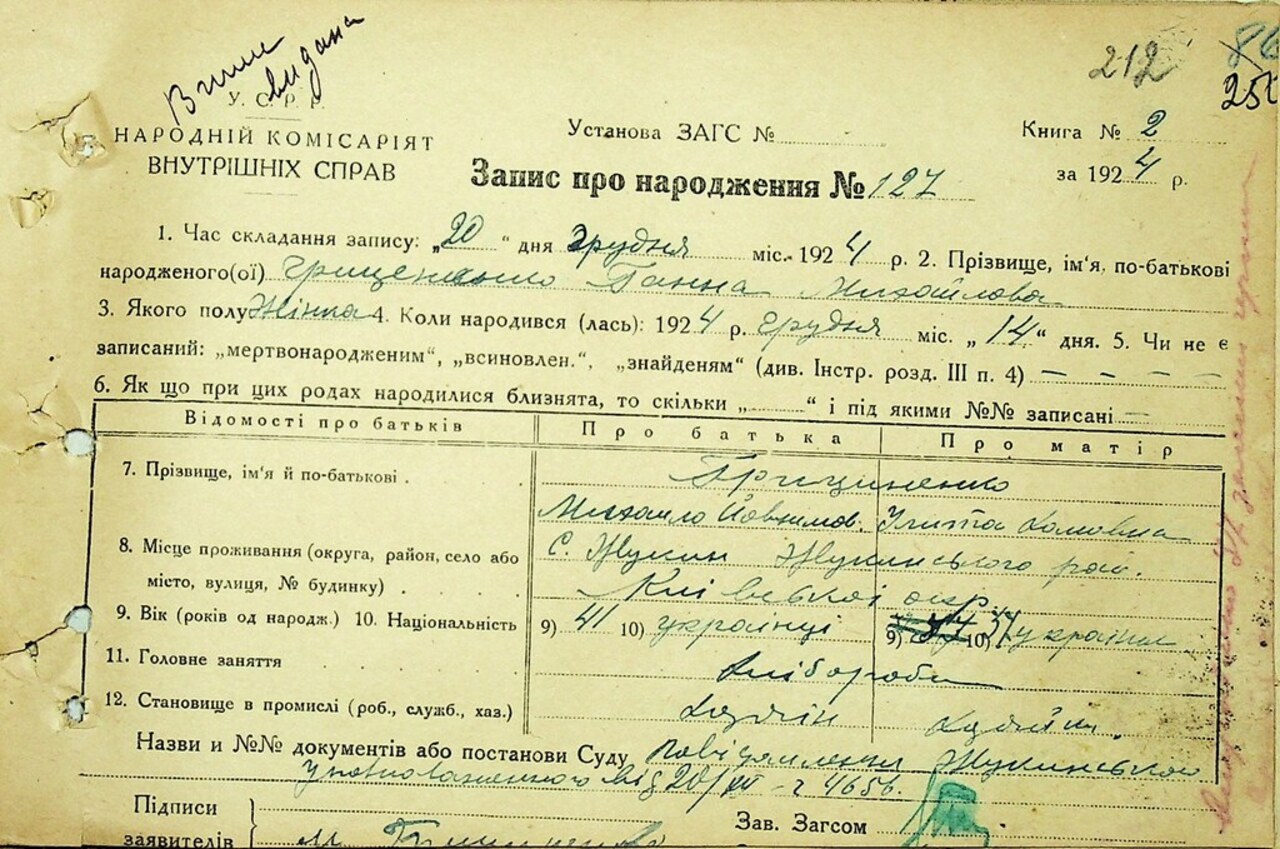 Випис видана
212
86
250
У. С. Р. Р.
НАРОДНІЙ КОМІСАРІЯТ
ВНУТРІШНІХ СПРАВ
Установа ЗАГС №
Книга № 2
за 1924 р.
Запис про народження № 127
1. Час складання запису: „20“ дня грудня міс. 1924 р. 2. Прізвище, ім'я, по-батькові
народженого(ої) Гриценько Ганна Михайлова
3. Якого полу Жінка 4. Коли народився (лась): 1924 р. грудня міс. „14“ дня. 5. Чи не є
записаний: „мертвонародженим“, „всиновлен.“, „знайденям“ (див. Інстр. розд. III п. 4) — — — —
6. Як що при цих родах народилися близнята, то скільки „ “ і під якими №№ записані —
Відомості про батьків Про батька Про матір
7. Прізвище, ім'я й по-батькові . Грициненко
Михайло Йовхимов. Улита Хомовна
8. Місце проживання (округа, район, село або С. Жукин Жукинського рай.
місто, вулиця, № будинку) Київської окр.
9. Вік (років од народж.) 10. Національність 9) 41 10) українці 9) 37 10) українка
11. Головне заняття Хлібороби
12. Становище в промислі (роб., служб., хаз.) Хазяїн Хазяїн.
Назви и №№ документів або постанови Суду Повідомлення Жукинської
Уповноваженного від 20/XII - 2 4656.
Підписи
заявителів
М. Грициненко
Зав. Загсом